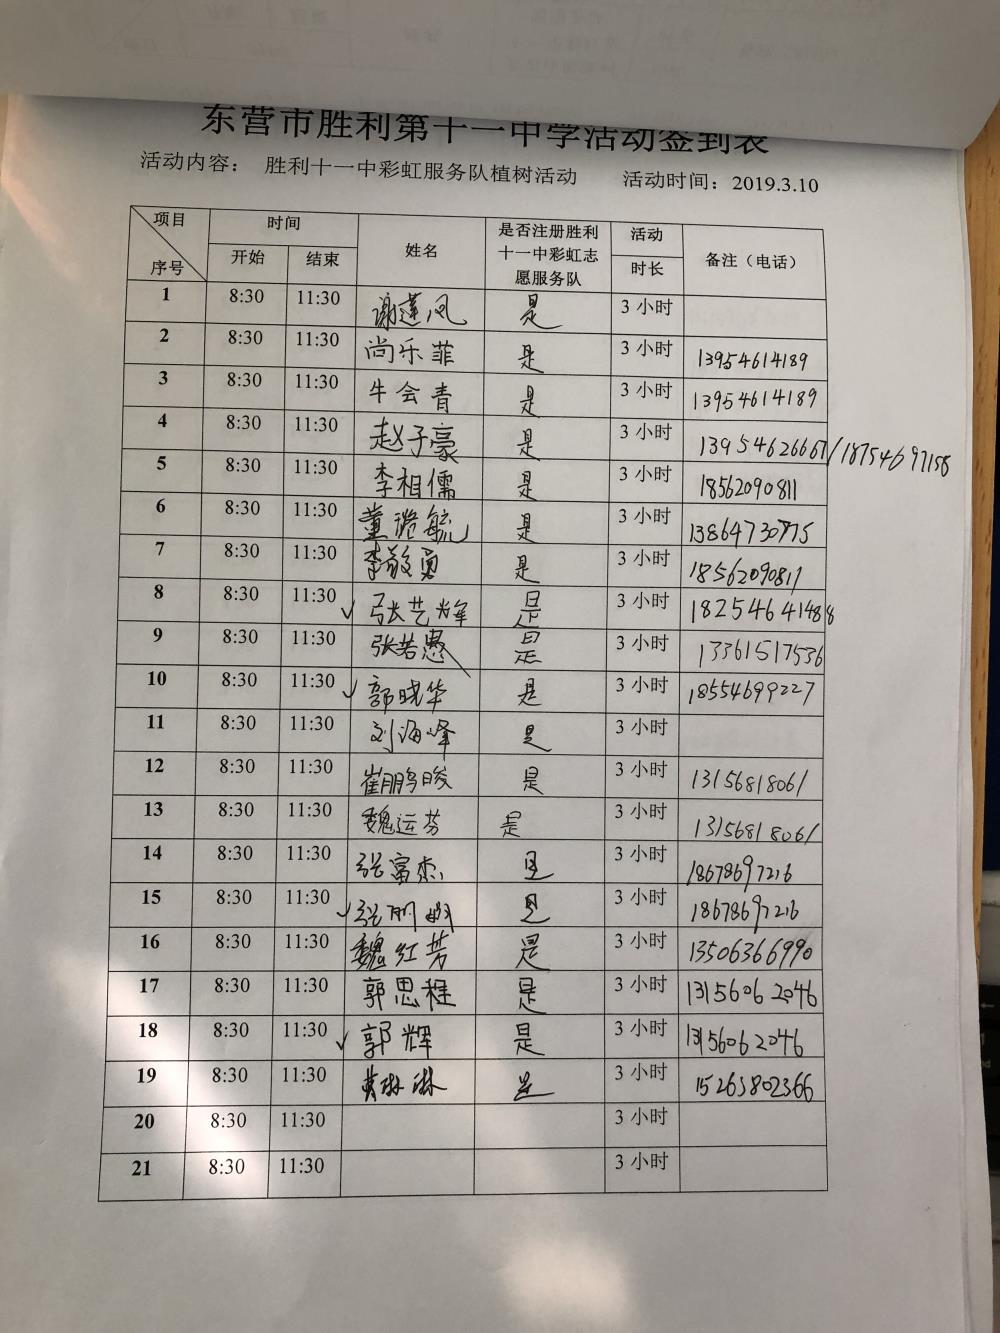 东营市胜利第十一中学活动签到表
活动内容： 胜利十一中彩虹服务队植树活动 活动时间：2019.3.10
项目 序号 时间 开始 结束 姓名 是否注册胜利十一中彩虹志愿服务队 活动时长 备注（电话）
1 8:30 11:30 谢莲凤 是 3 小时
2 8:30 11:30 尚乐菲 是 3 小时 13954614189
3 8:30 11:30 牛会青 是 3 小时 13954614189
4 8:30 11:30 赵子豪 是 3 小时 13954626667/18754697158
5 8:30 11:30 李相儒 是 3 小时 18562090811
6 8:30 11:30 董 毓 是 3 小时 13864730775
7 8:30 11:30 李敬勇 是 3 小时 18562090811
8 8:30 11:30 ✓ 张艺辉 是 3 小时 18254641488
9 8:30 11:30 张若愚 是 3 小时 13361517536
10 8:30 11:30 ✓ 郭晓华 是 3 小时 18554699227
11 8:30 11:30 刘海峰 是 3 小时
12 8:30 11:30 崔鹏晙 是 3 小时 13156818061
13 8:30 11:30 魏运芬 是 3 小时 13156818061
14 8:30 11:30 张富杰 是 3 小时 18678697216
15 8:30 11:30 ✓ 张丽娟 是 3 小时 18678697216
16 8:30 11:30 魏红芳 是 3 小时 13506366990
17 8:30 11:30 郭思程 是 3 小时 13156062046
18 8:30 11:30 ✓ 郭辉 是 3 小时 13156062046
19 8:30 11:30 黄琳琳 是 3 小时 15263802366
20 8:30 11:30 3 小时
21 8:30 11:30 3 小时